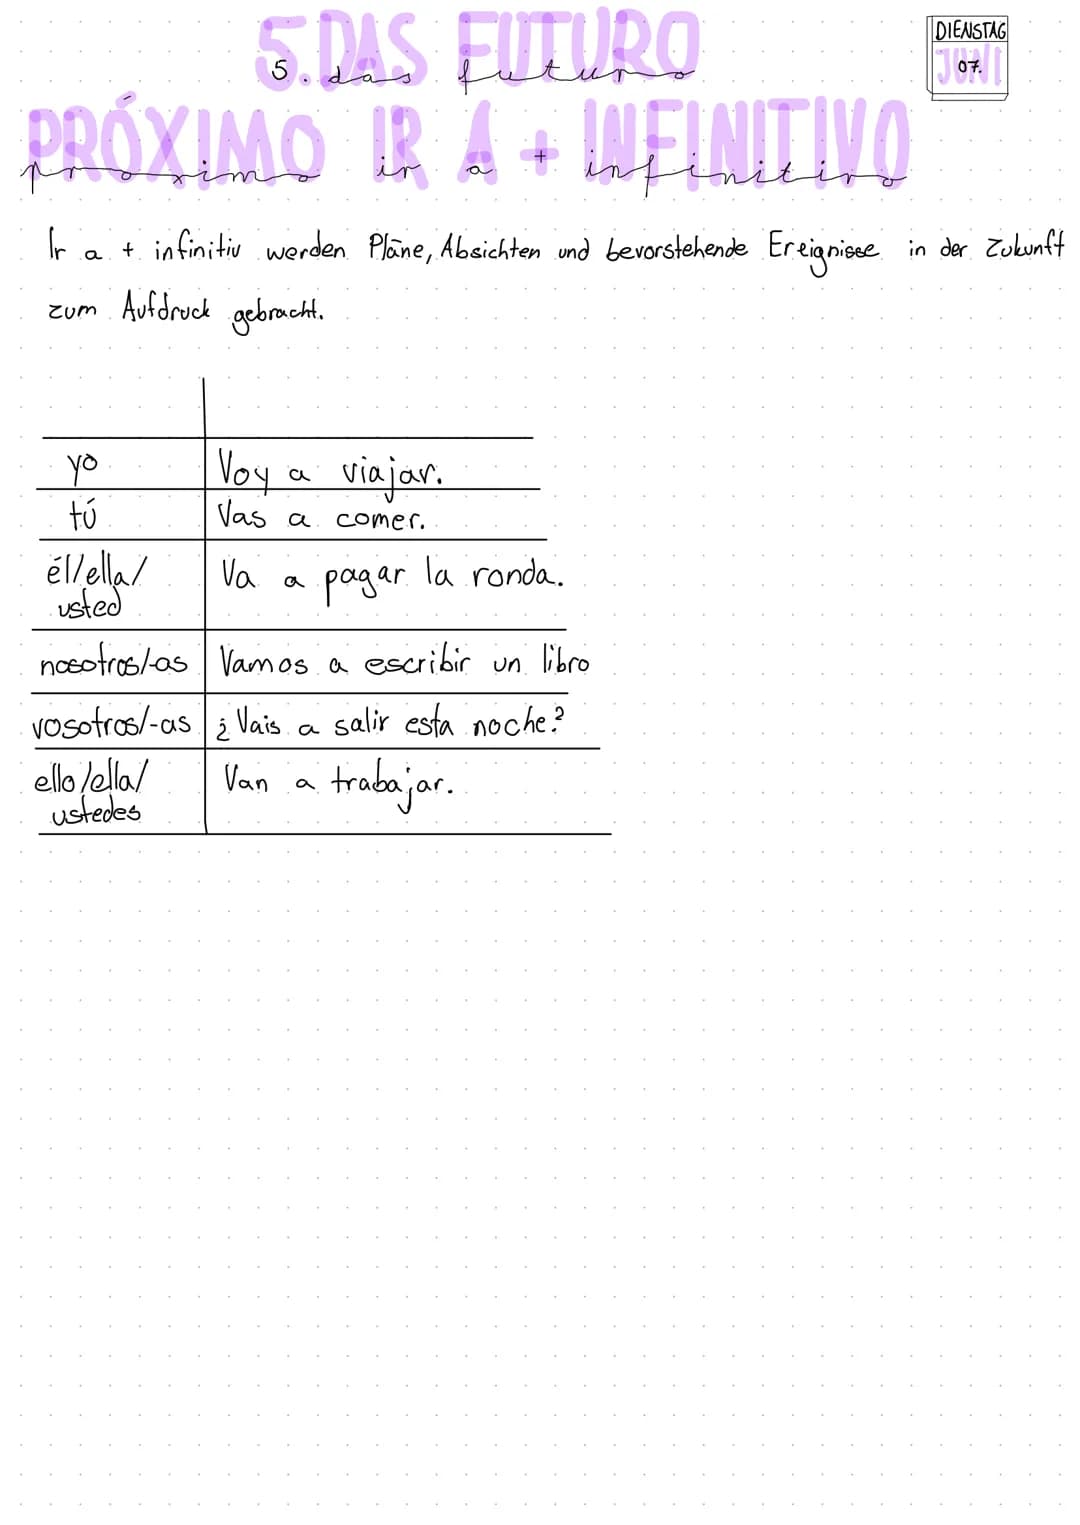 5. DAS FUTURO
5. das futuro
DIENSTAG
JUNI
07.
PRÓXIMO IR A + INFINITIVO
proximo ir a + infinitivo
Ir a + infinitiv werden Pläne, Absichten und bevorstehende Ereignisse in der Zukunft
zum Aufdruck gebracht.
yo Voy a viajar.
tú Vas a comer.
él/ella/ Va a pagar la ronda.
usted
nosotros/-as Vamos a escribir un libro
vosotros/-as ¿Vais a salir esta noche?
ello/ella/ Van a trabajar.
ustedes